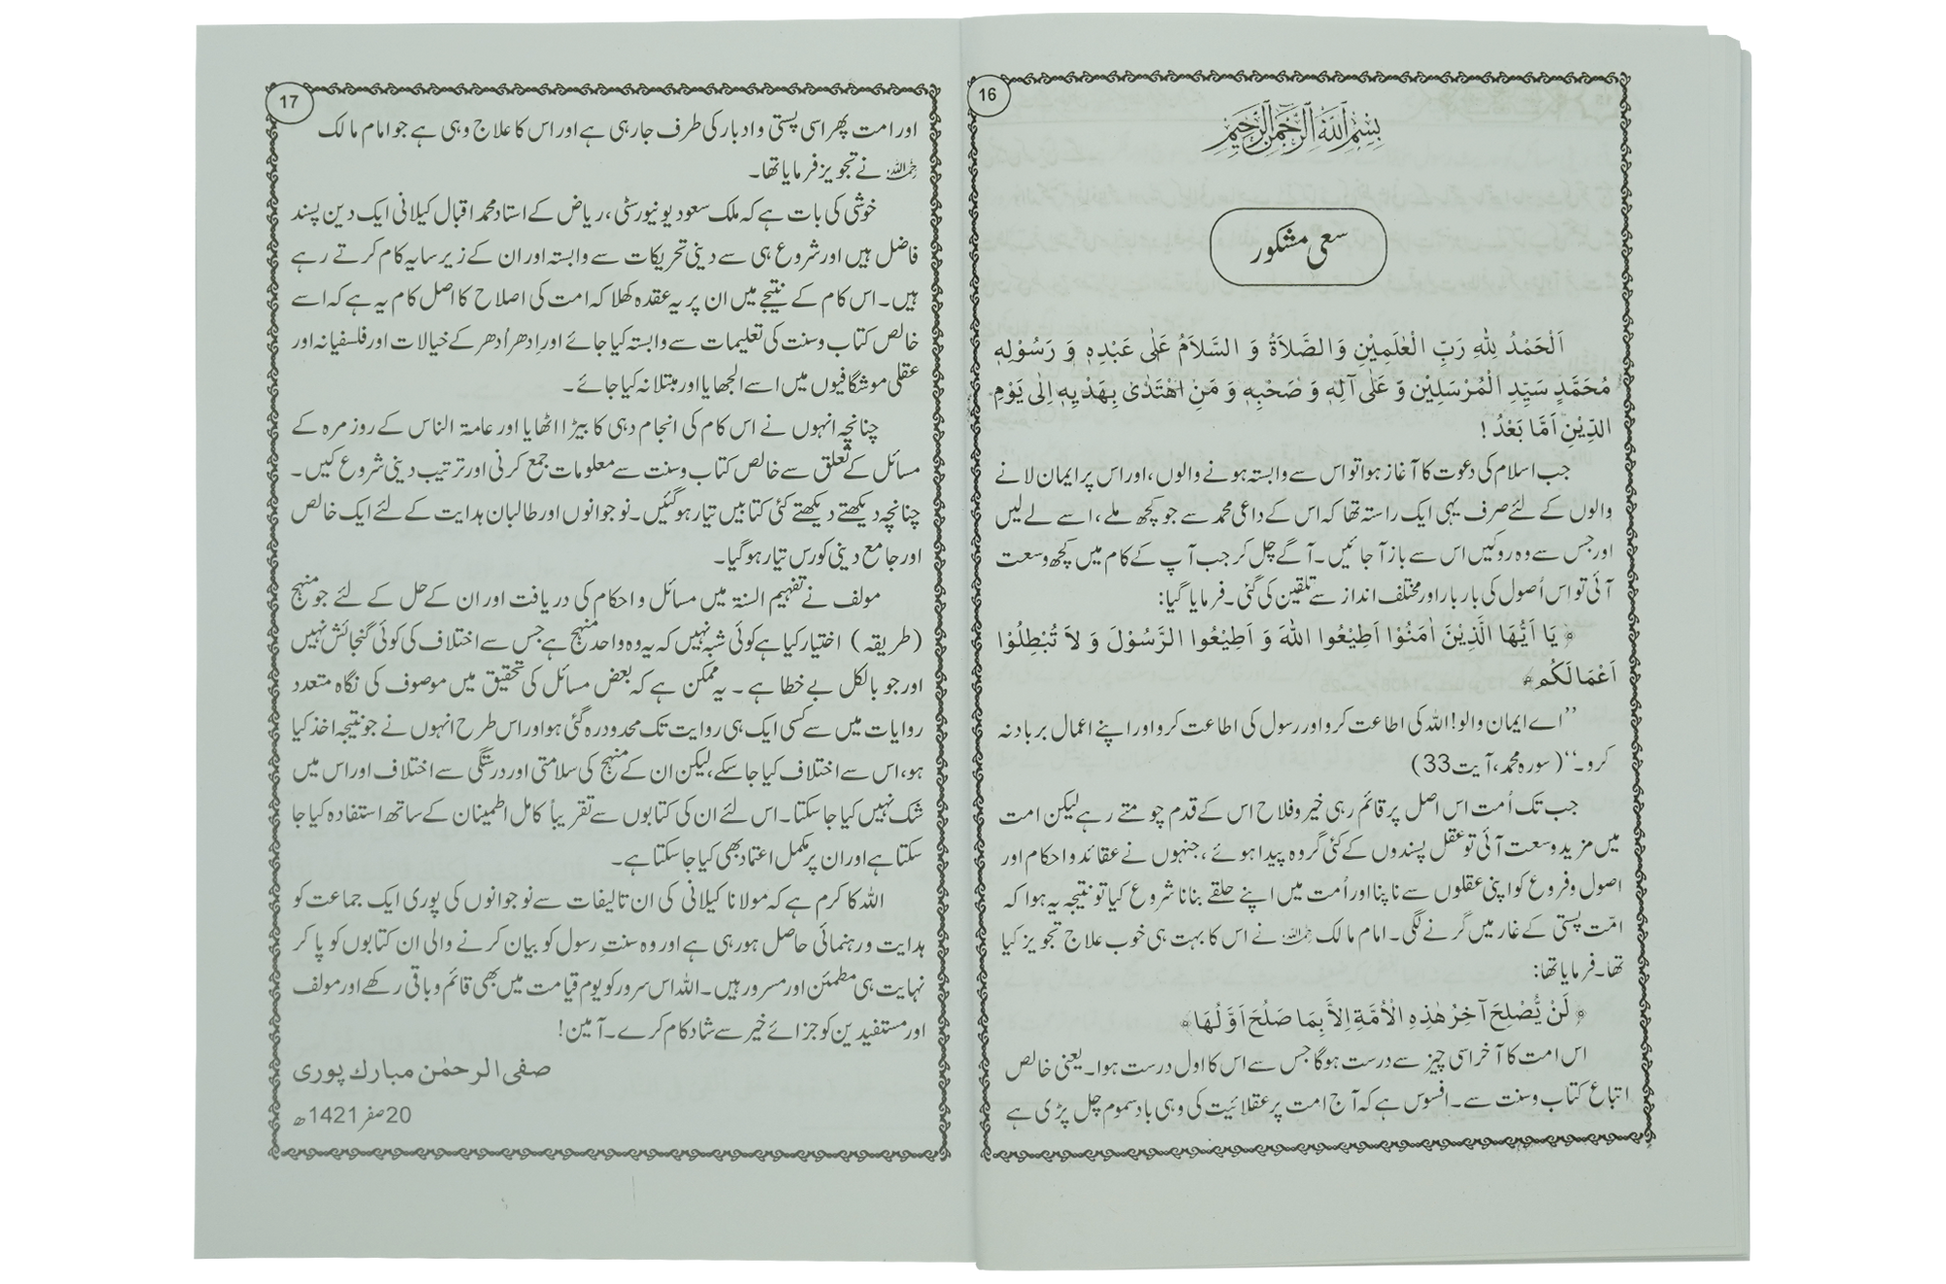 16
بِسْمِ اللهِ الرَّحْمٰنِ الرَّحِيْمِ
سعی مشکور
اَلْحَمْدُ لِلّٰهِ رَبِّ الْعٰلَمِيْنِ وَالصَّلاَةُ وَ السَّلاَمُ عَلٰى عَبْدِهٖ وَ رَسُوْلِهٖ
مُحَمَّدٍ سَيِّدِ الْمُرْسَلِيْنِ وَ عَلٰى آلِهٖ وَ صَحْبِهٖ وَ مَنِ اهْتَدٰى بِهَدْيِهٖ اِلٰى يَوْمِ
الدِّيْنِ اَمَّا بَعْدُ !
جب اسلام کی دعوت کا آغاز ہوا تو اس سے وابستہ ہونے والوں، اور اس پر ایمان لانے
والوں کے لئے صرف یہی ایک راستہ تھا کہ اس کے داعی محمد سے جو کچھ ملے، اسے لے لیں
اور جس سے وہ روکیں اس سے باز آ جائیں۔ آگے چل کر جب آپ کے کام میں کچھ وسعت
آئی تو اس اُصول کی بار بار اور مختلف انداز سے تلقین کی گئی۔ فرمایا گیا:
﴿ يَا اَيُّهَا الَّذِيْنَ اٰمَنُوْا اَطِيْعُوا اللهَ وَ اَطِيْعُوا الرَّسُوْلَ وَ لاَ تُبْطِلُوْا
اَعْمَالَكُم﴾
’’اے ایمان والو! اللہ کی اطاعت کرو اور رسول کی اطاعت کرو اور اپنے اعمال برباد نہ
کرو۔‘‘ (سورہ محمد، آیت 33)
جب تک اُمت اس اصل پر قائم رہی خیر و فلاح اس کے قدم چومتے رہے لیکن امت
میں مزید وسعت آئی تو عقل پسندوں کے کئی گروہ پیدا ہوئے، جنہوں نے عقائد و احکام اور
اصول و فروع کو اپنی عقلوں سے ناپنا اور اُمت میں اپنے حلقے بنانا شروع کیا تو نتیجہ یہ ہوا کہ
امّت پستی کے غار میں گرنے لگی۔ امام مالک رحمہ اللہ نے اس کا بہت ہی خوب علاج تجویز کیا
تھا۔ فرمایا تھا:
﴿ لَنْ يُّصْلِحَ آخِرُ هٰذِهِ الْاُمَّةِ اِلاَّ بِمَا صَلُحَ اَوَّلُهَا﴾
اس امت کا آخر اسی چیز سے درست ہوگا جس سے اس کا اول درست ہوا۔ یعنی خالص
اتباع کتاب و سنت سے۔ افسوس ہے کہ آج امت پر عقلائیت کی وہی باد سموم چل پڑی ہے
17
اور امت پھر اسی پستی و ادبار کی طرف جا رہی ہے اور اس کا علاج وہی ہے جو امام مالک
رحمہ اللہ نے تجویز فرمایا تھا۔
خوشی کی بات ہے کہ ملک سعود یونیورسٹی، ریاض کے استاد محمد اقبال کیلانی ایک دین پسند
فاضل ہیں اور شروع ہی سے دینی تحریکات سے وابستہ اور ان کے زیر سایہ کام کرتے رہے
ہیں۔ اس کام کے نتیجے میں ان پر یہ عقدہ کھلا کہ امت کی اصلاح کا اصل کام یہ ہے کہ اسے
خالص کتاب و سنت کی تعلیمات سے وابستہ کیا جائے اور اِدھر اُدھر کے خیالات اور فلسفیانہ اور
عقلی موشگافیوں میں اسے الجھایا اور مبتلا نہ کیا جائے۔
چنانچہ انہوں نے اس کام کی انجام دہی کا بیڑا اٹھایا اور عامۃ الناس کے روز مرہ کے
مسائل کے تعلق سے خالص کتاب و سنت سے معلومات جمع کرنی اور ترتیب دینی شروع کیں۔
چنانچہ دیکھتے دیکھتے کئی کتابیں تیار ہو گئیں۔ نوجوانوں اور طالبان ہدایت کے لئے ایک خالص
اور جامع دینی کورس تیار ہو گیا۔
مولف نے تفہیم السنۃ میں مسائل و احکام کی دریافت اور ان کے حل کے لئے جو منہج
(طریقہ) اختیار کیا ہے کوئی شبہ نہیں کہ یہ وہ واحد منہج ہے جس سے اختلاف کی کوئی گنجائش نہیں
اور جو بالکل بے خطا ہے۔ یہ ممکن ہے کہ بعض مسائل کی تحقیق میں موصوف کی نگاہ متعدد
روایات میں سے کسی ایک ہی روایت تک محدود رہ گئی ہو اور اس طرح انہوں نے جو نتیجہ اخذ کیا
ہو، اس سے اختلاف کیا جا سکے، لیکن ان کے منہج کی سلامتی اور درستگی سے اختلاف اور اس میں
شک نہیں کیا جا سکتا۔ اس لئے ان کی کتابوں سے تقریباً کامل اطمینان کے ساتھ استفادہ کیا جا
سکتا ہے اور ان پر مکمل اعتماد بھی کیا جا سکتا ہے۔
اللہ کا کرم ہے کہ مولانا کیلانی کی ان تالیفات سے نوجوانوں کی پوری ایک جماعت کو
ہدایت و رہنمائی حاصل ہو رہی ہے اور وہ سنتِ رسول کو بیان کرنے والی ان کتابوں کو پا کر
نہایت ہی مطمئن اور مسرور ہیں۔ اللہ اس سرور کو یوم قیامت میں بھی قائم و باقی رکھے اور مولف
اور مستفیدین کو جزائے خیر سے شاد کام کرے۔ آمین!
صفی الرحمٰن مبارك پوری
20 صفر 1421ھ